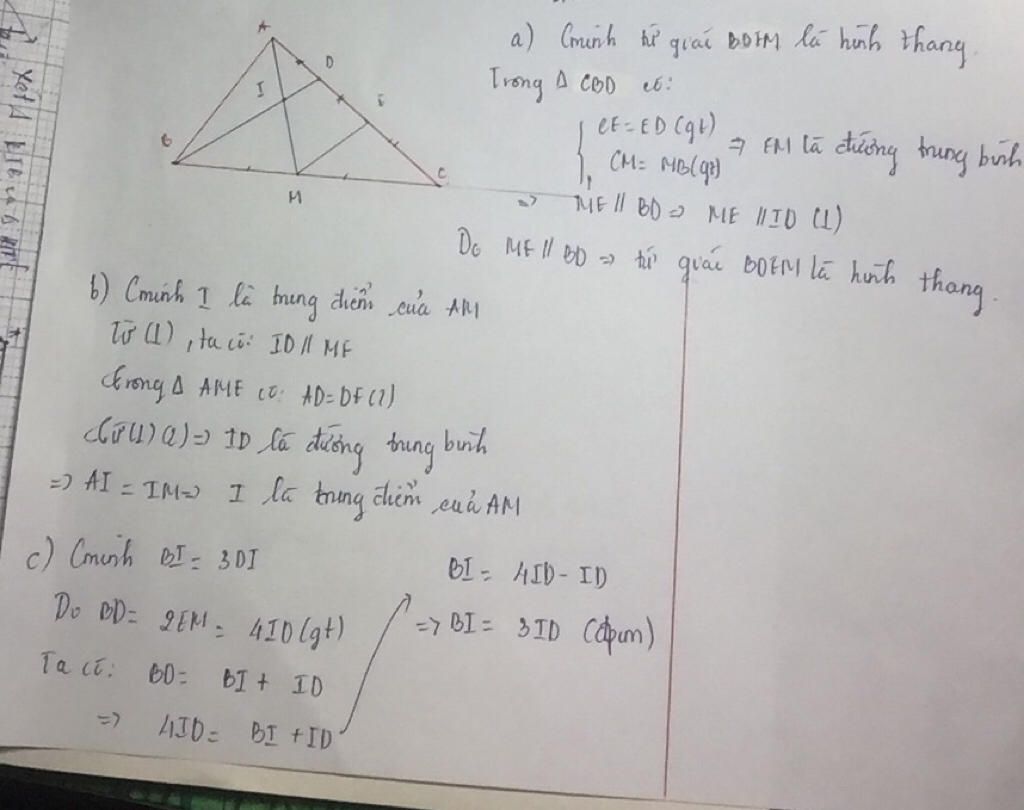 A
D
I
E
B
M
C
a) Cminh tứ giác BDEM là hình thang.
Trong Δ CBD có:
CE = ED (gt)
CM = MB (gt)
⇒ EM là đường trung bình
⇒ ME // BD ⇒ ME // ID (1)
Do ME // BD ⇒ tứ giác BDEM là hình thang.
b) Cminh I là trung điểm của AM
Từ (1), ta có: ID // ME
Trong Δ AME có: AD = DE (2)
Từ (1) (2) ⇒ ID là đường trung bình
⇒ AI = IM ⇒ I là trung điểm của AM
c) Cminh BI = 3DI
Do BD = 2EM = 4ID (gt)
Ta có: BD = BI + ID
⇒ 4ID = BI + ID
BI = 4ID - ID
⇒ BI = 3ID (đpcm)
Xét Δ